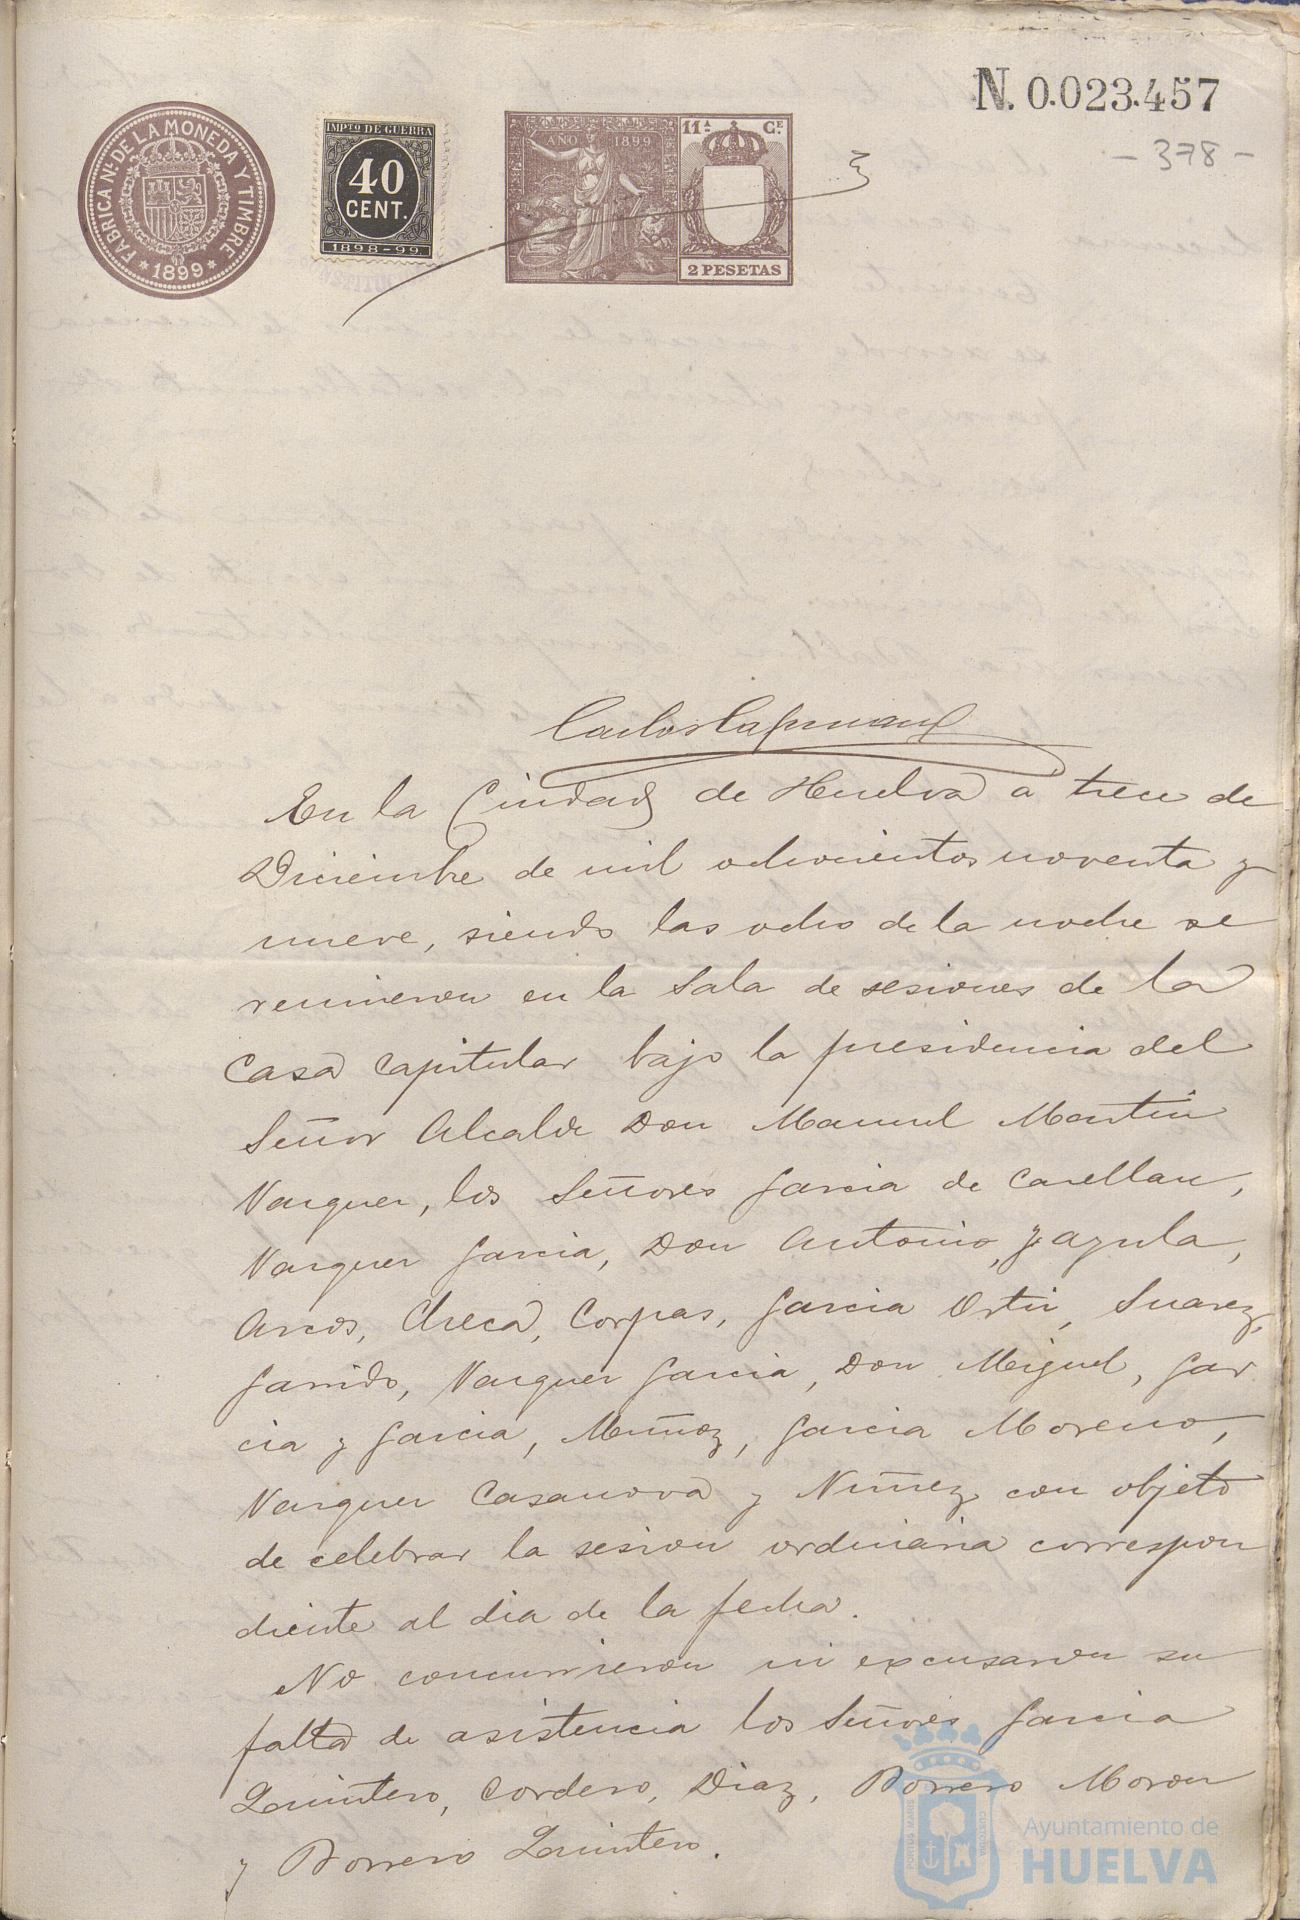 N. 0.023.457
- 378 -
FABRICA Nl. DE LA MONEDA Y TIMBRE
* 1899 *
IMPTO DE GUERRA
40
CENT.
1898-99
AÑO 1899
11ª Ce.
2 PESETAS
Carlos
En la Ciudad de Huelva a trece de
Diciembre de mil ochocientos noventa y
nueve, siendo las ocho de la noche se
reunieron en la Sala de sesiones de la
Casa Capitular bajo la presidencia del
Señor Alcalde Don Manuel Martin
Vazquez, los Señores Garcia de Casellan,
Vazquez Garcia, Don Antonio, y azula,
Arcos, Checa, Corpas, Garcia Ortiz, Suarez,
Garrido, Vazquez Garcia, Don Miguel, Gar
cia y Garcia, Muñoz, Garcia Moreno,
Vazquez Casanova y Nuñez con objeto
de celebrar la sesion ordinaria correspon
diente al dia de la fecha.
No concurrieron ni excusaron su
falta de asistencia los Señores Garcia
Quintero, Cordero, Diaz, Borrero Moron
y Borrero Quintero.
PORTUS MARIS
CUSTODIA
Ayuntamiento de
HUELVA